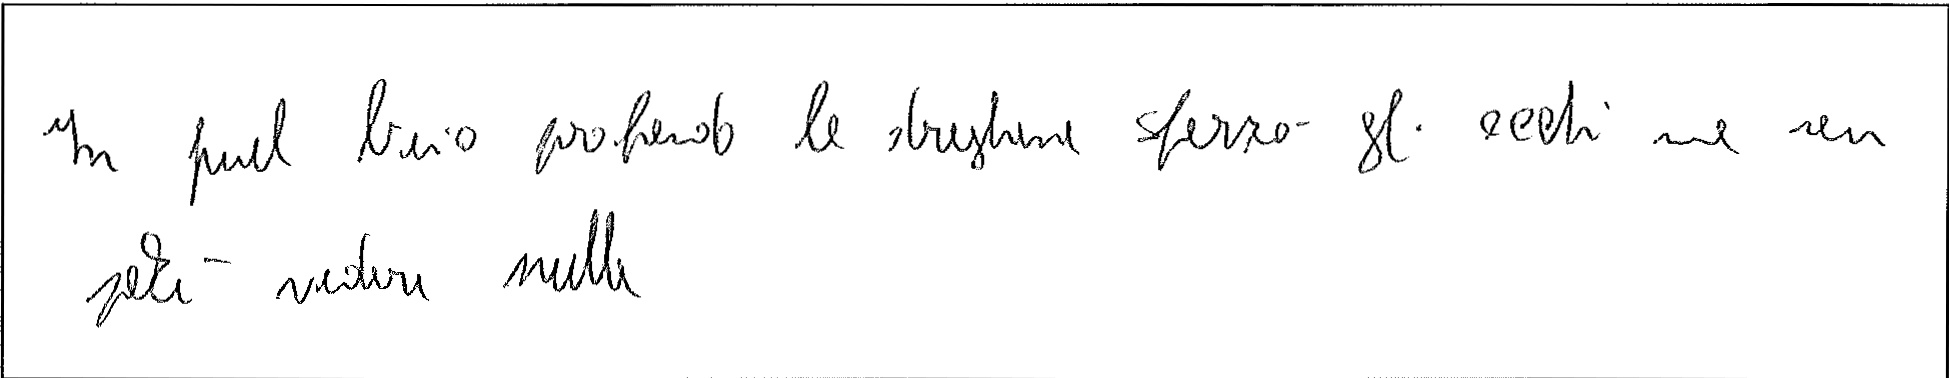 In quel buio profondo la streghina sforzò gli occhi ma non
poté vedere nulla